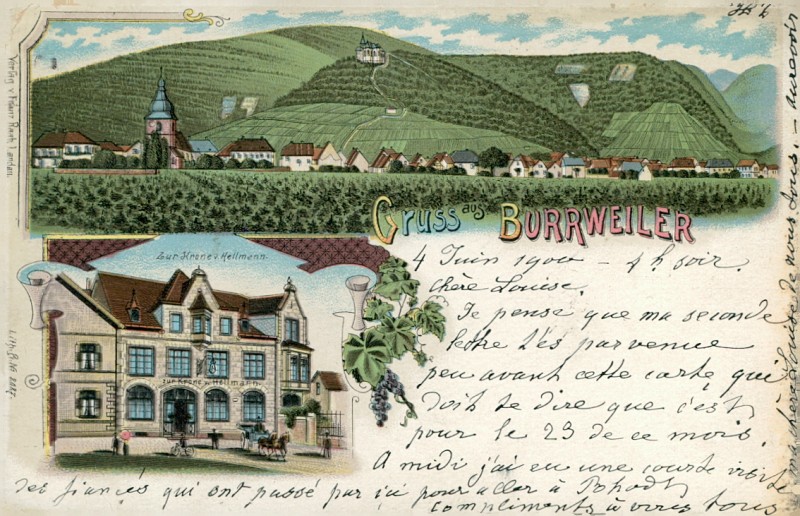 Verlag v. Franz Rach, Landau.
Gruss aus BURRWEILER
Zur Krone v. Hellmann.
zur Krone v. Hellmann.
4 Juin 1900 - 4 h. soir.
chère Louise.
Je pense que ma seconde
lettre t'es parvenue
peu avant cette carte qui
doit te dire que c'est
pour le 23 de ce mois.
A midi j'ai eu une courte visite
des fiancés qui ont passé par ici pour aller à
compliments à vous tous
ma chère Louise de nous tous. - aurevoir